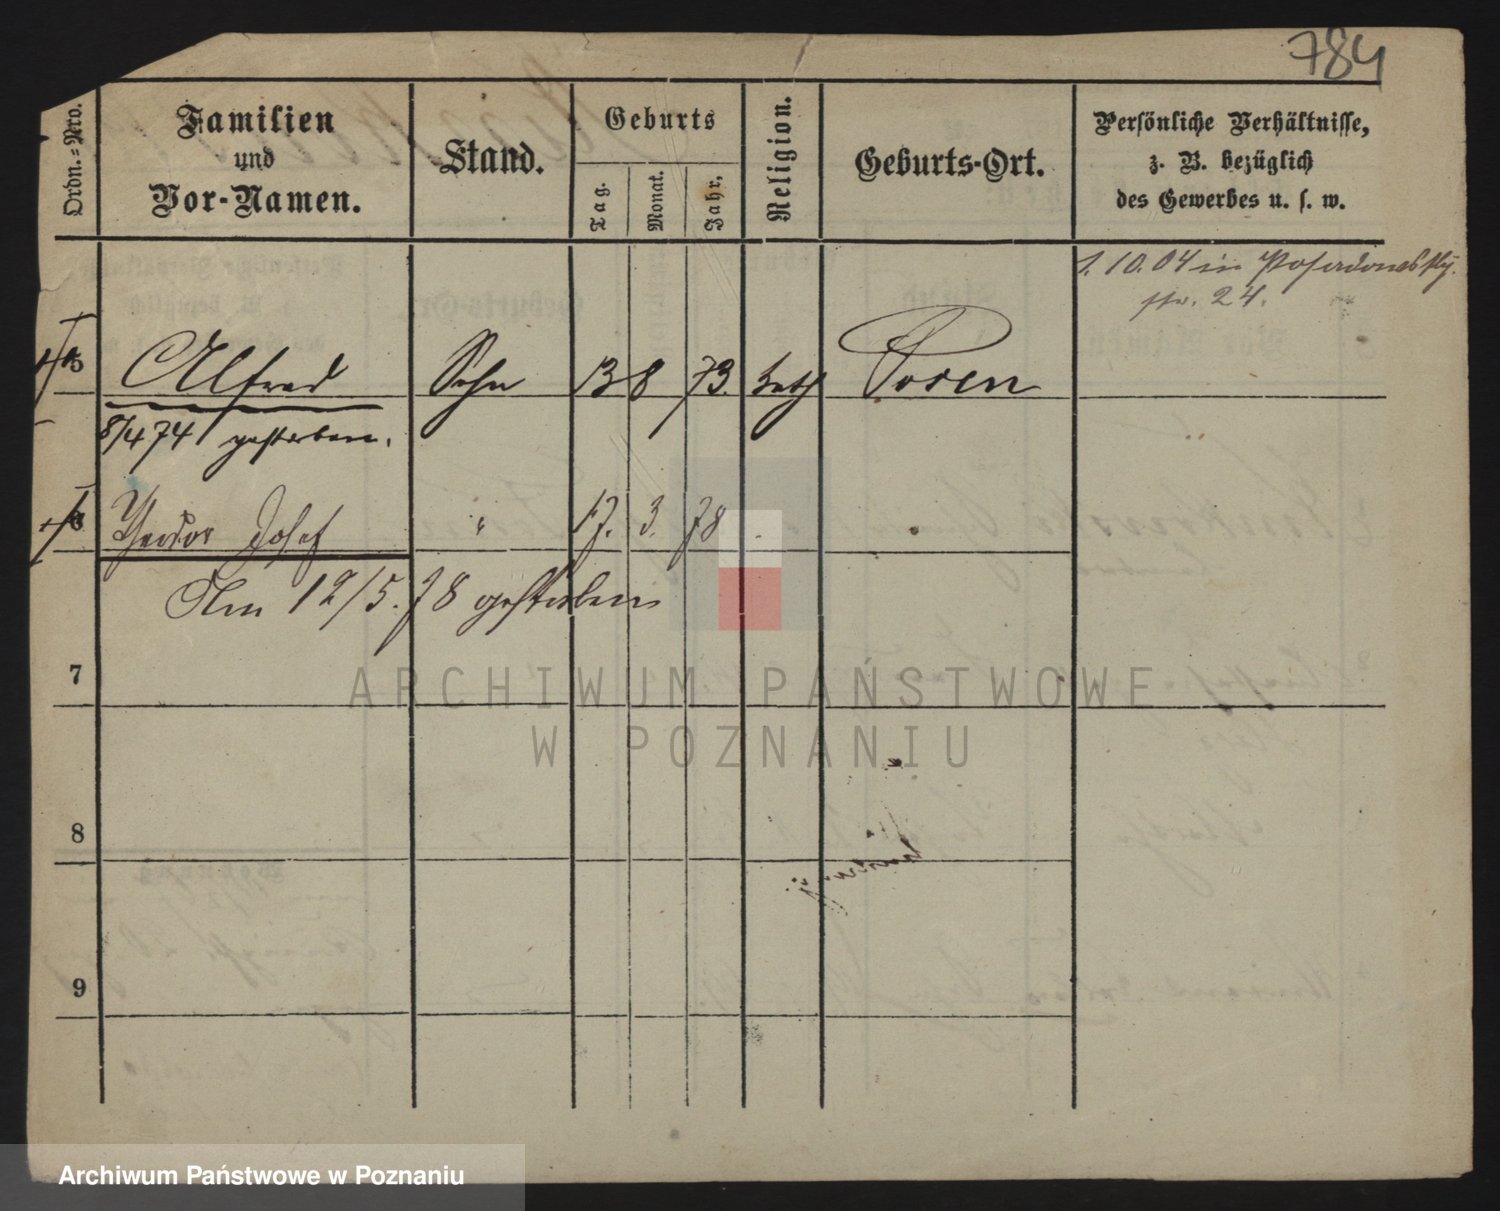 784
Ordn.-Nro.
Familien
und
Vor-Namen.
Stand.
Geburts
Tag.
Monat.
Jahr.
Religion.
Geburts-Ort.
Persönliche Verhältnisse,
z. B. bezüglich
des Gewerbes u. s. w.
1. 10. 04 in
str. 24.
5 Alfred Sohn 13 8 73. kath Posen
8/4 74 gestorben.
6 Theodor Josef " 17. 3. 78
Am 12/5. 78 gestorben
7
8
9
ARCHIWUM PAŃSTWOWE
W POZNANIU
Archiwum Państwowe w Poznaniu